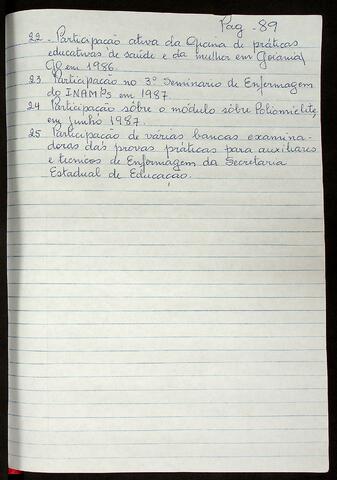 Pag - 89
22 - Participação ativa da Oficina de práticas
educativas de saúde e da mulher em Goiania/
GO em 1986.
23 Participação no 3º Seminario de Enfermagem
do INAMPs em 1987.
24 Participação sôbre o módulo sôbre Poliomielite,
em junho 1987.
25 Participação de várias bancas examina-
doras das provas práticas para auxiliares
e tecnicos de Enfermagem da Secretaria
Estadual de Educação.